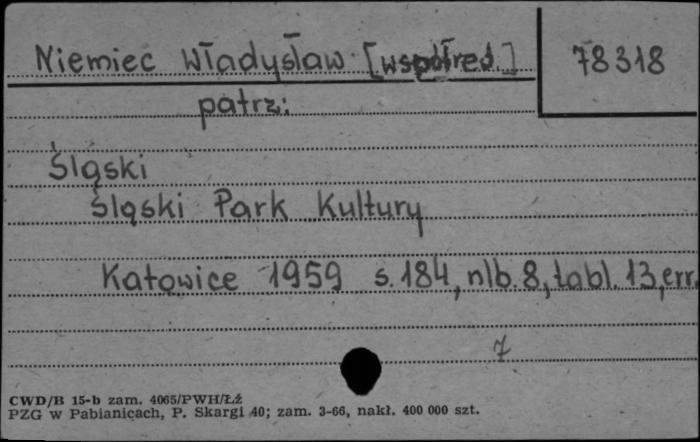 Niemiec Władysław [współred.] 78318
patrz:
Śląski
Śląski Park Kultury
Katowice 1959 s. 184, nlb. 8, tabl. 13, err.
7
CWD/B 15-b zam. 4065/PWH/Łź
PZG w Pabianicach, P. Skargi 40; zam. 3-66, nakł. 400 000 szt.